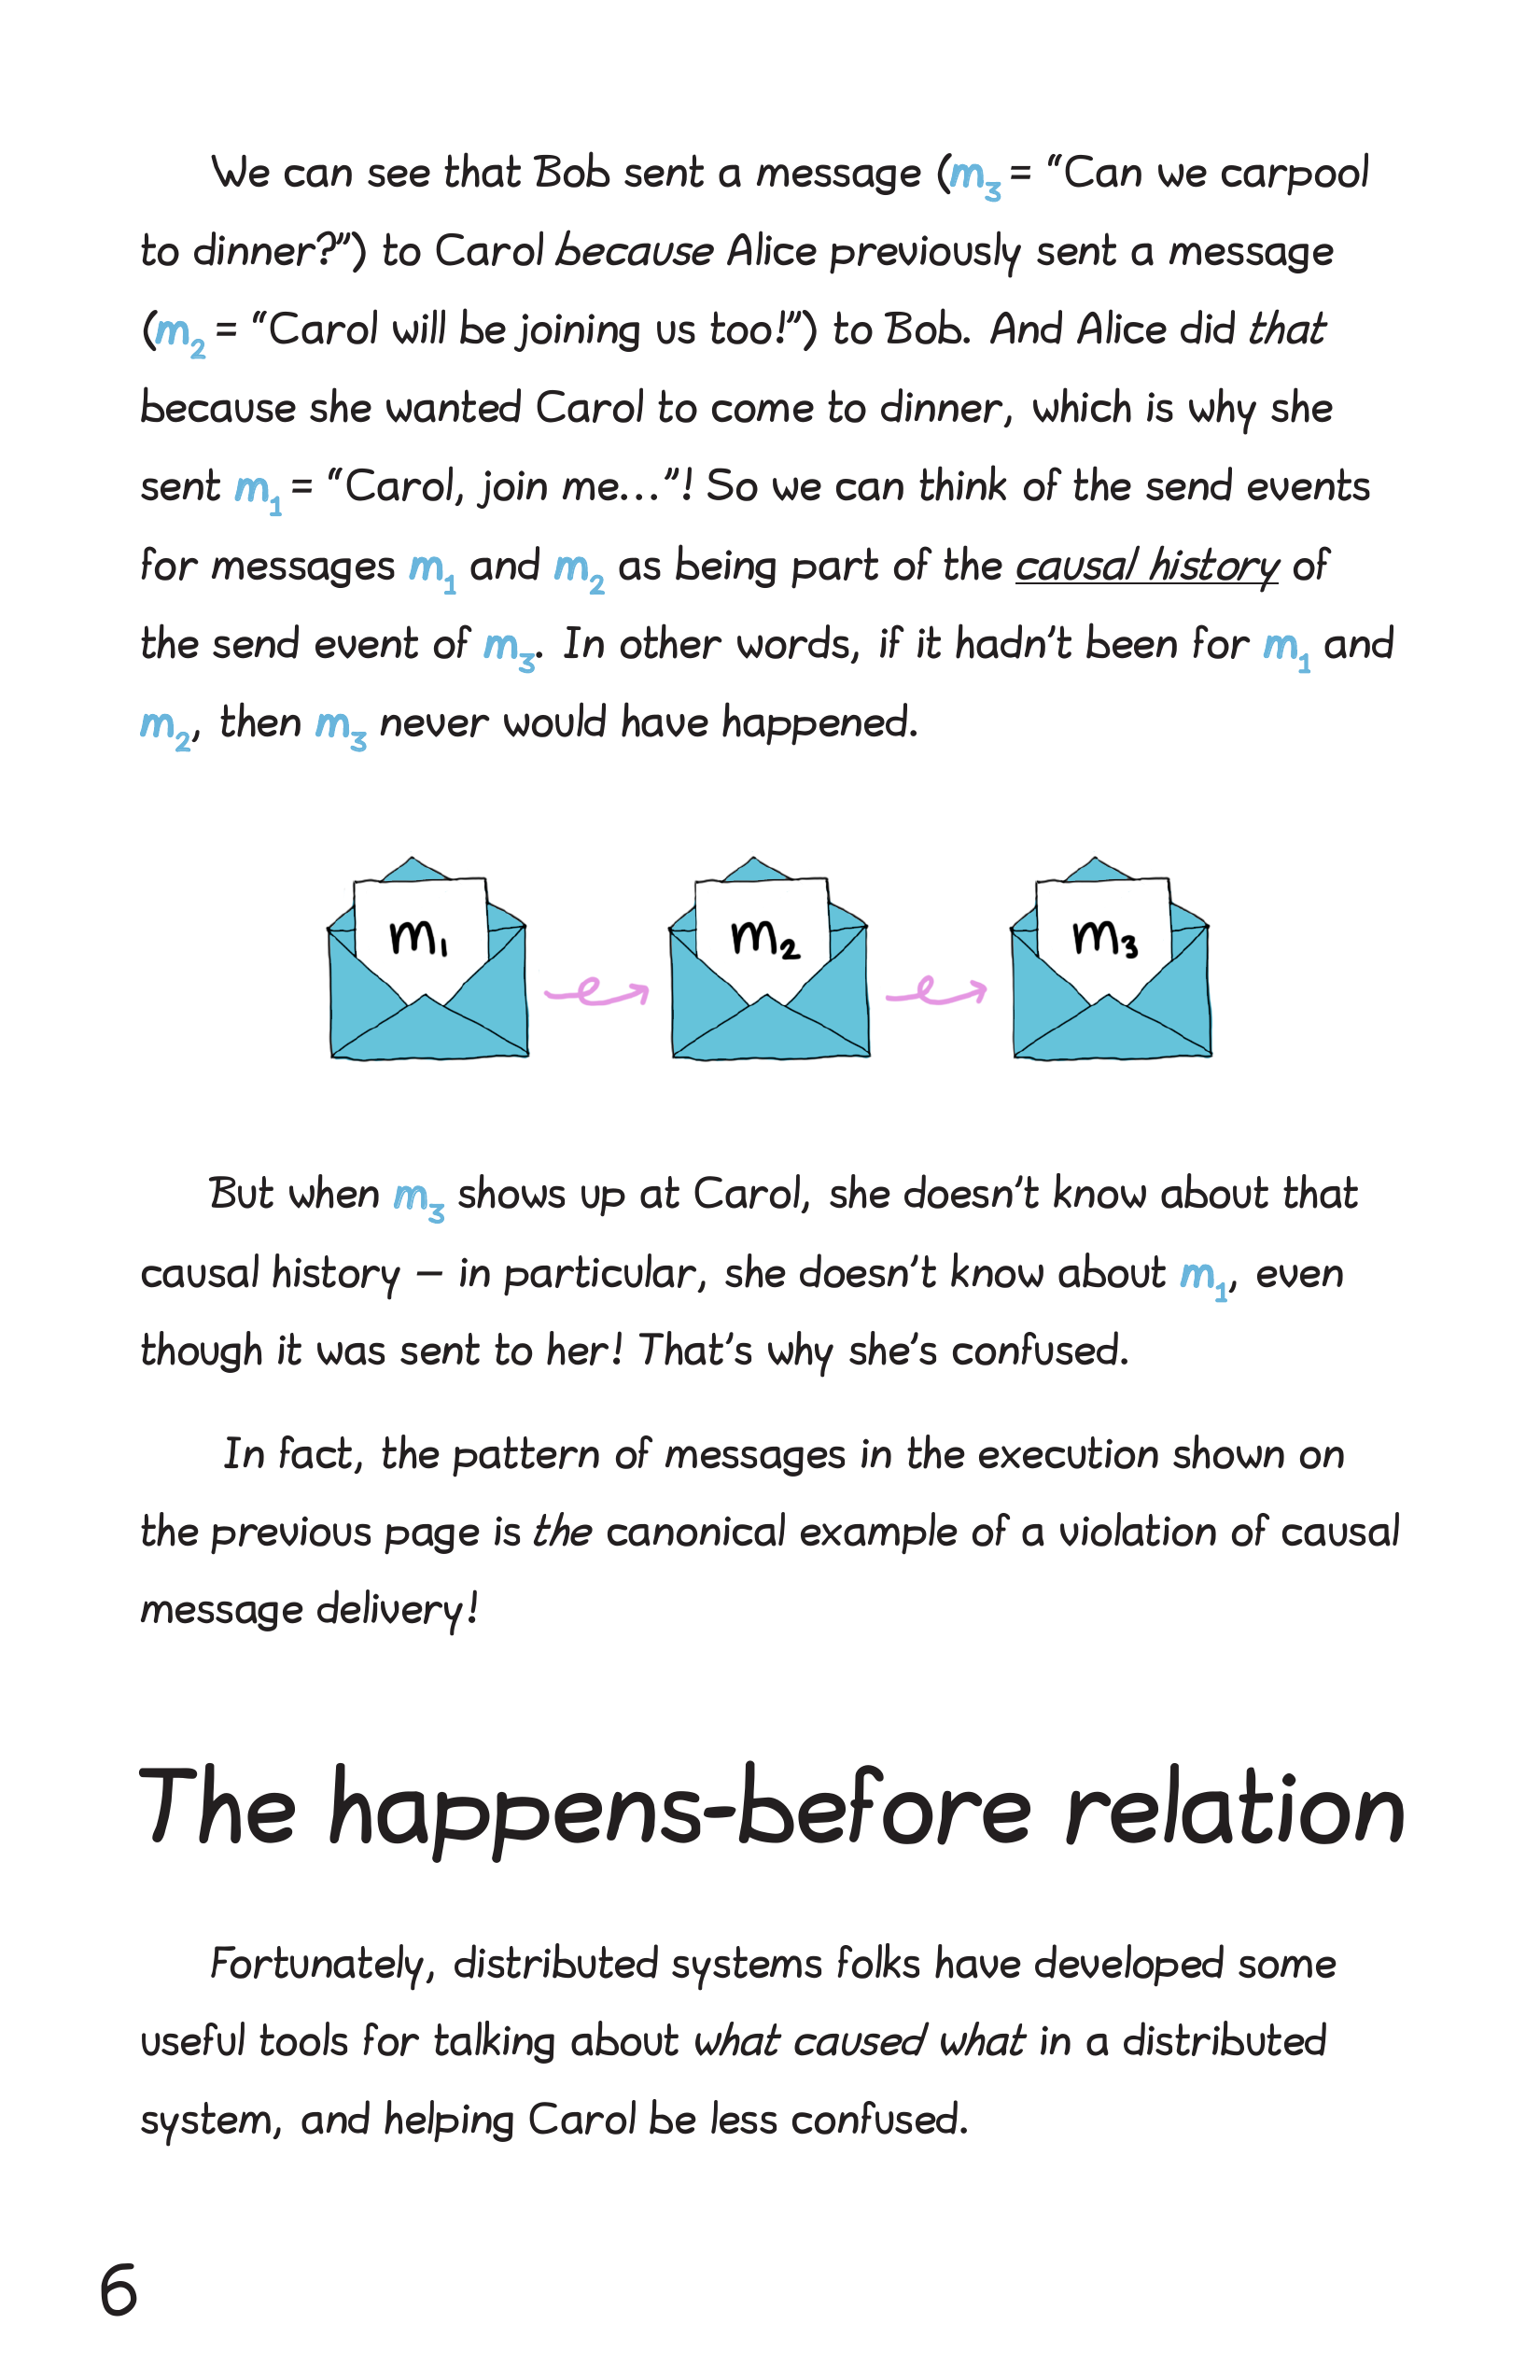 We can see that Bob sent a message (m₃ = “Can we carpool
to dinner?”) to Carol because Alice previously sent a message
(m₂ = “Carol will be joining us too!”) to Bob. And Alice did that
because she wanted Carol to come to dinner, which is why she
sent m₁ = “Carol, join me...”! So we can think of the send events
for messages m₁ and m₂ as being part of the causal history of
the send event of m₃. In other words, if it hadn’t been for m₁ and
m₂, then m₃ never would have happened.
m₁ m₂ m₃
But when m₃ shows up at Carol, she doesn’t know about that
causal history – in particular, she doesn’t know about m₁, even
though it was sent to her! That’s why she’s confused.
In fact, the pattern of messages in the execution shown on
the previous page is the canonical example of a violation of causal
message delivery!
The happens-before relation
Fortunately, distributed systems folks have developed some
useful tools for talking about what caused what in a distributed
system, and helping Carol be less confused.
6